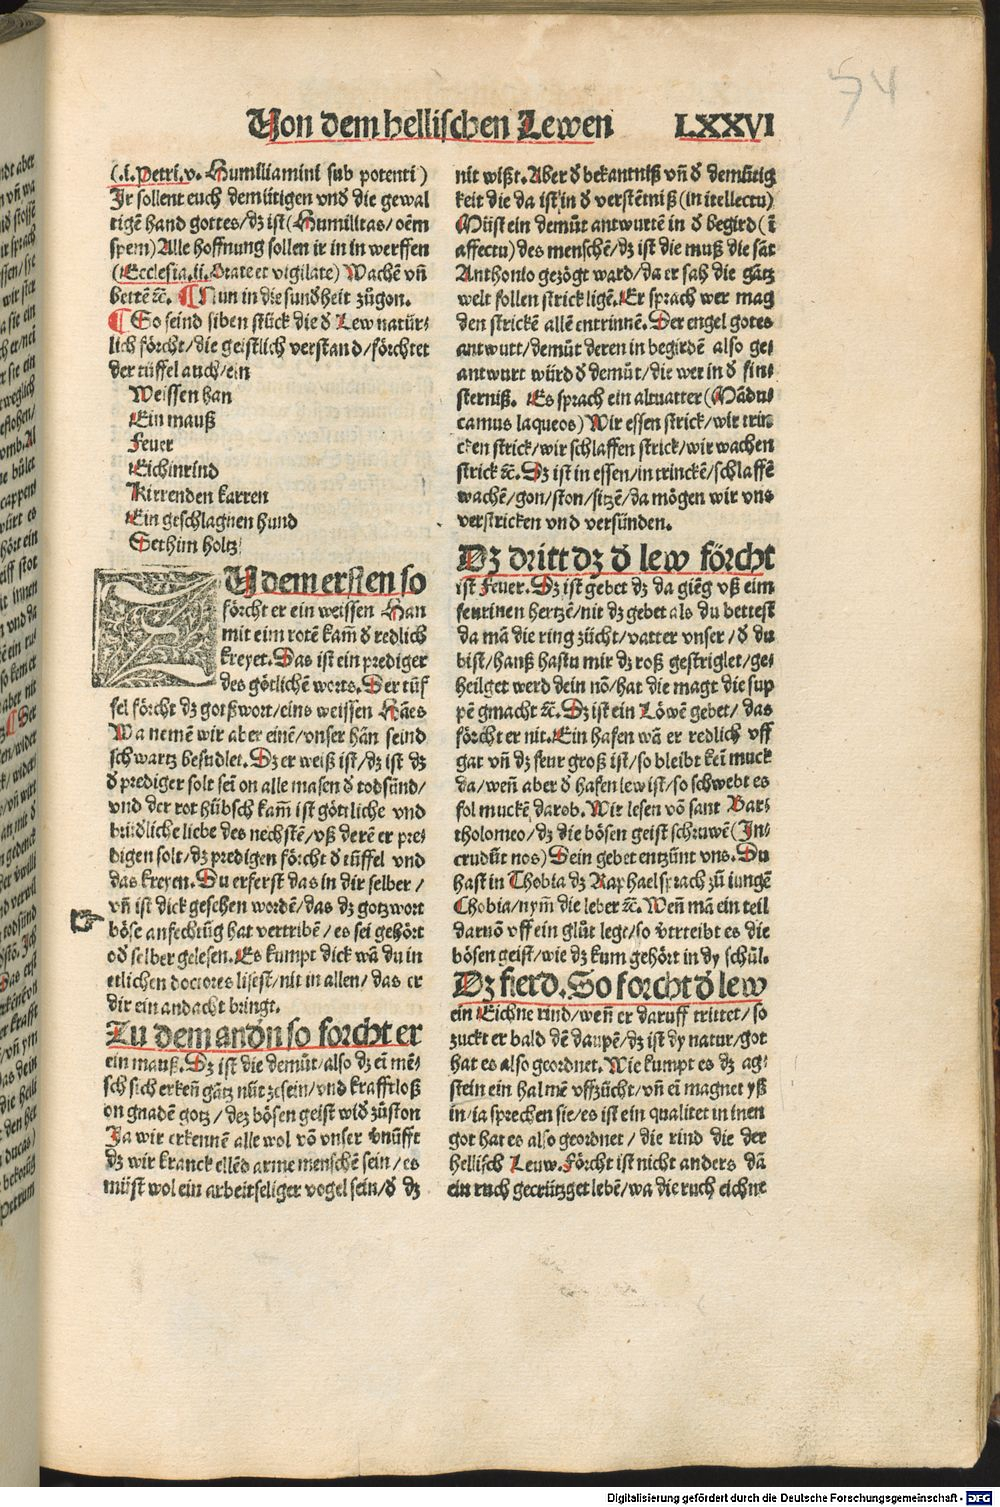 Von dem hellischen Lewen LXXVI
74
(.i. Petri. v. Humiliamini sub potenti)
Ir sollent euch demütigen vnd die gewal
tigē hand gottes/dz ist (Humilitas/oēm
spem) Alle hoffnung sollen ir in in werffen
(Ecclesia. ii. Orate et vigilate) Wachē vn̄
bettē ⁊c̄. ¶ Nun in die sundheit zůgon.
¶ So seind siben stück die d̄ Lew natür⸗
lich förcht/die geistlich verstand/förchtet
der tüffel auch/ein
Weissen han
Ein mauß
Feuer
Eichinrind
Kirrenden karren
Ein geschlagnen hund
Sethim holtz
ZU dem ersten so
förcht er ein weissen Han
mit eim rotē kam̄ d̄ redlich
kreyet. Das ist ein prediger
des götlichē worts. Der tüf
fel förcht dz gotßwort/eins weissen Hāes
Wa nemē wir aber einē/vnser hān seind
schwartz besudlet. Dz er weiß ist/dz ist dz
d̄ prediger solt sei on alle masen d̄ todsünd/
vnd der rot hübsch kam̄ ist göttliche vnd
brüdliche liebe des nechstē/vß derē er pre⸗
digen solt/dz predigen förcht d̄ tüffel vnd
das kreyen. Du erferst das in dir selber/
vn̄ ist dick geschen wordē/das dz gotzwort
böse anfechtūg hat vertribē/es sei gehört
od̄ selber gelesen. Es kumpt dick wā du in
etlichen doctores lisest/nit in allen/das er
dir ein andacht bringt.
Zu dem andn̄ so forcht er
ein mauß. Dz ist die demüt/also dz ei mē⸗
sch sich erken̄ gātz nüt zesein/vnd krafftloß
on gnadē gotz/dez bösen geist wid̄ zůston
Ja wir erkennē alle wol vō vnser v̄nūfft
dz wir kranck ellēd arme menschē sein/es
müst wol ein arbeitseliger vogel sein/d̄ dz
nit wißt. Aber d̄ bekantniß vn̄ d̄ demütig
keit die da ist in d̄ verstētniß (in itellectu)
Müst ein demüt antwurtē in d̄ begird (ī
affectu) des menschē/dz ist die muß die sāt
Anthonio gezögt ward/da er sah die gātz
welt follen strick ligē. Er sprach wer mag
den strickē allē entrinnē. Der engel gotes
antwutt/demüt deren in begirdē also ge⸗
antwurt würd d̄ demüt/die wer in d̄ fins
sterniß. Es sprach ein altuatter (Mādu
camus laqueos) Wir essen strick/wir trin
cken strick/wir schlaffen strick/wir wachen
strick ⁊c̄. Dz ist in essen/in trinckē/schlaffē
wachē/gon/ston/sitzē/da mögen wir vns
verstricken vnd versünden.
Dz dritt dz d̄ lew förcht
ist Feuer. Dz ist gebet dz da giēg vß eim
feurinen hertzē/nit dz gebet als du bettest
da mā die ring zücht/vatter vnser/d̄ du
bist/hanß hastu mir dz roß gestriglet/ge⸗
heilget werd dein nō/hat die magt die sup
pē gmacht ⁊c̄. Dz ist ein Löwē gebet/das
förcht er nit. Ein hafen wā er redlich vff
gat vn̄ dz feur groß ist/so bleibt kei muck
da/wen̄ aber d̄ hafen lew ist/so schwebt es
fol muckē darob. Wir lesen vō sant Bar⸗
tholomeo/dz die bösen geist schruwē (In⸗
crudūt nos) Dein gebet entzünt vns. Du
hast in Thobia dz Raphael sprach zů iungē
Thobia/nym̄ die leber ⁊c̄. Wen̄ mā ein teil
daruō vff ein glüt lege/so vertreibt es die
bösen geist/wie dz kum gehört in dy schül.
Dz fierd. So forcht d̄ lew
ein Eichne rind/wen̄ er daruff trittet/so
zuckt er bald dē daupē/dz ist dy natur/got
hat es also geordnet. Wie kumpt es dz ag⸗
stein ein halmē vffzücht/vn̄ ei magnet yß
in/ia sprechen sie/es ist ein qualitet in inen
got hat es also geordnet/die rind die der
hellisch Leuw. Förcht ist nicht anders dā
ein ruch gecrützget lebē/wa die ruch eichne
Digitalisierung gefördert durch die Deutsche Forschungsgemeinschaft - DFG